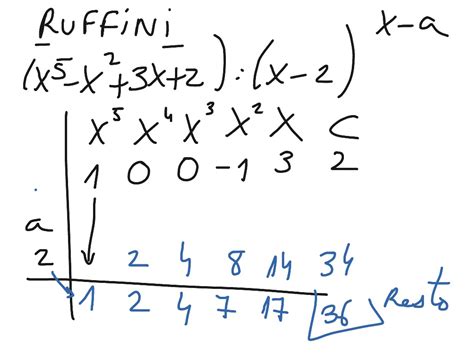 RUFFINI
x-a
(x⁵-x²+3x+2):(x-2)
x⁵ x⁴ x³ x² x C
1 0 0 -1 3 2
a
2 2 4 8 14 34
1 2 4 7 17 36 Resto